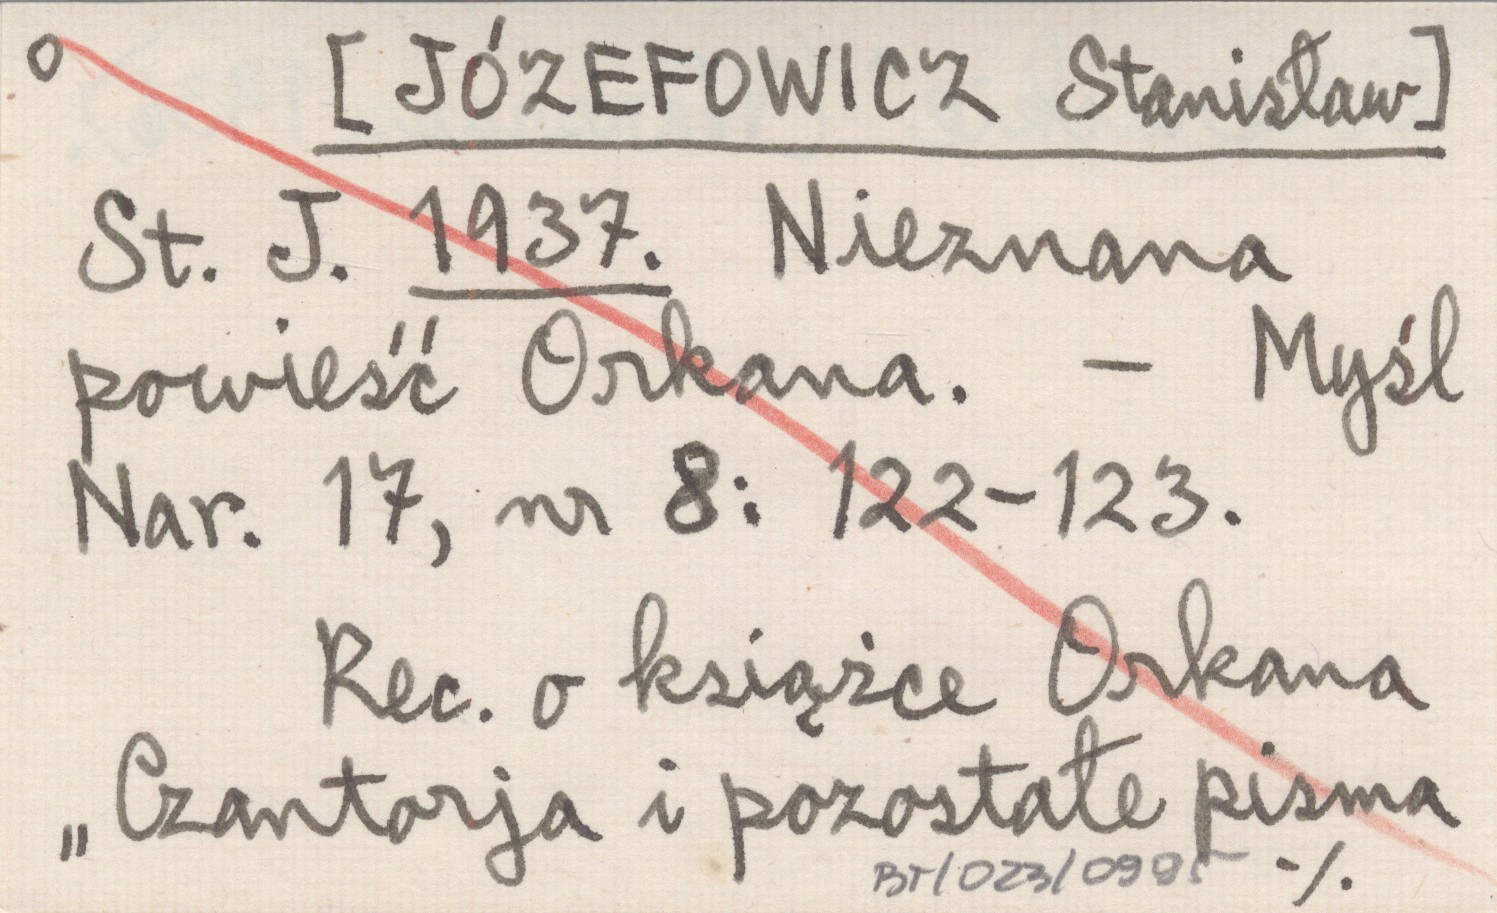 o [JÓZEFOWICZ Stanisław]
St. J. 1937. Nieznana
powieść Orkana. – Myśl
Nar. 17, nr 8: 122–123.
Rec. o książce Orkana
„Czantorja i pozostałe pisma
BT/023/0985 -/.